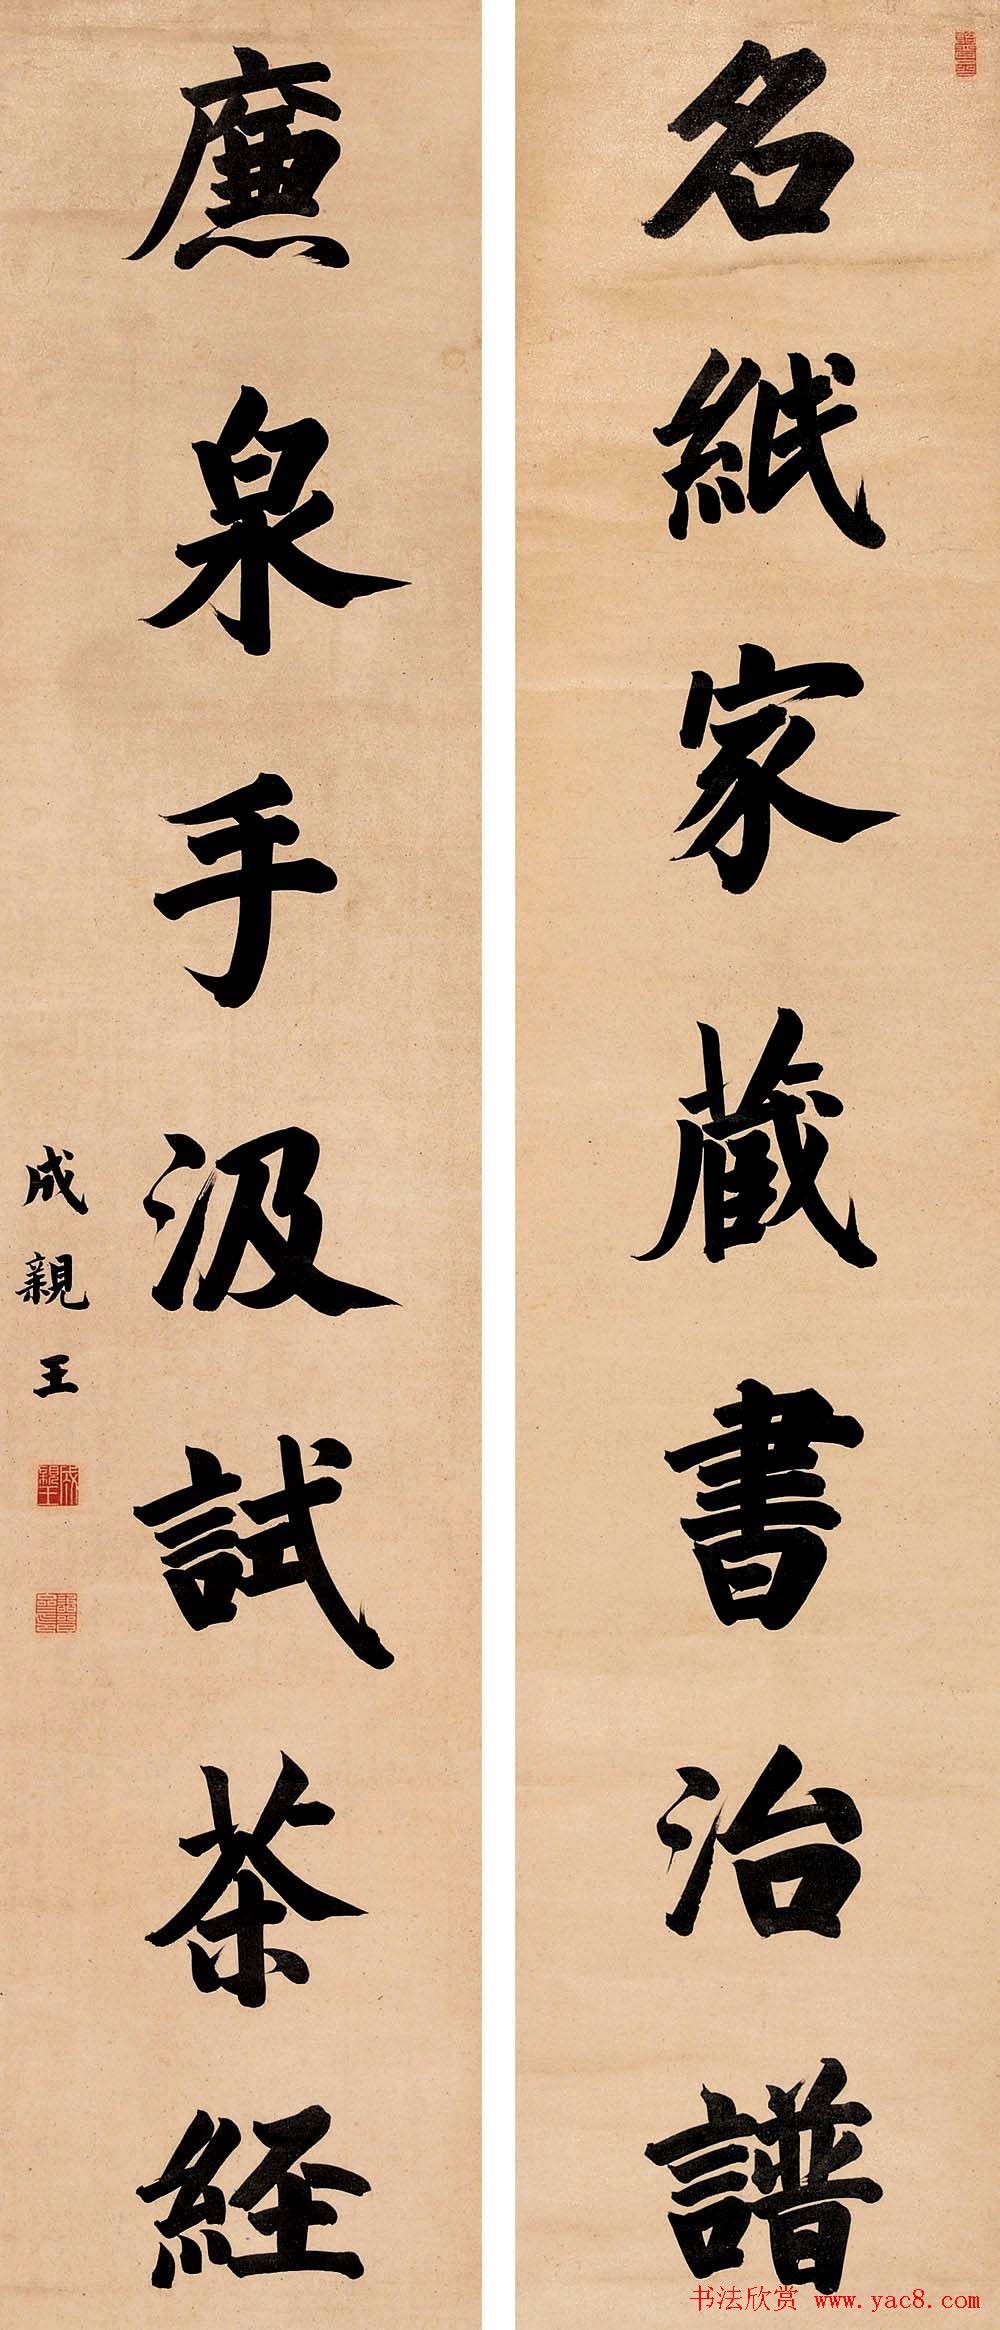 名紙家藏書治譜
廉泉手汲試茶經
成親王
书法欣赏 www.yac8.com